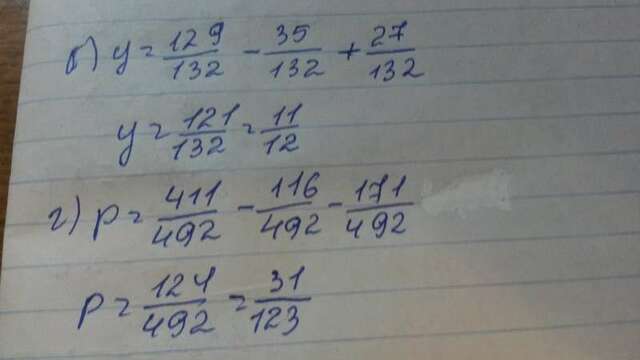 б) y = 129/132 - 35/132 + 27/132
y = 121/132 = 11/12
г) p = 411/492 - 116/492 - 171/492
p = 124/492 = 31/123